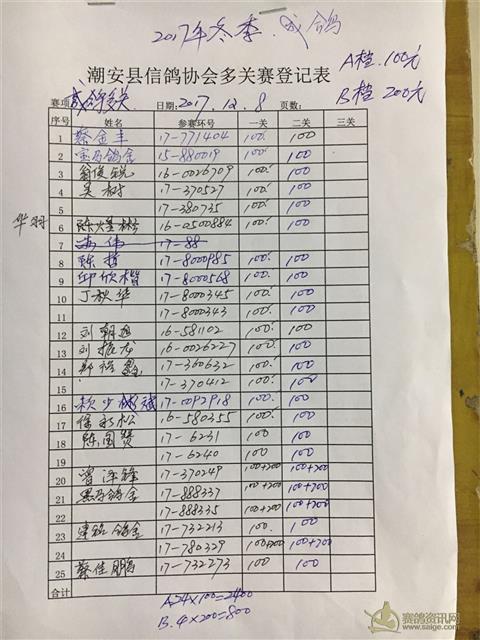 2017年冬季. 成鸽
A档.100元
潮安县信鸽协会多关赛登记表
B档 200元
赛项 成鸽多关 日期: 2017.12.8 页数:
序号 姓名 参赛环号 一关 二关 三关
1 蔡金丰 17-771404 100. 100
2 宝马鸽舍 15-880019 100. 100
3 翁俊锐 16-0026709 100. 100
4 吴树 17-370527 100. 100
5 17-380735 100. 100
华羽 6 陈火星彬 16-0500884 100. 100
7 17-88
8 陈哲 17-8000985 100. 100
9 邱欣楷 17-8000568 100. 100
10 丁秋华 17-8000345 100. 100
11 17-8000343 100. 100
12 刘朝旭 16-581102 100. 100
13 刘振龙 16-0026227 100. 100
14 郑 17-360632 100. 100
15 17-370412 100. 100
16 赖少彬斌 17-0092918 100. 100
17 徐永松 16-580355 100. 100
18 陈国贤 17-6231 100 100
19 17-6240 100 100
20 曾泽锋 17-370249 100+200 100+200
21 黑马鸽舍 17-888327 100+200 100+200
22 17-888335 100+200 100+200
23 鸽舍 17-732213 100. 100
24 17-780329 100+200 100+200
25 蔡佳鹏 17-732273 100 100
合计
A.24×100=2400
B.4×200=800
赛鸽资讯网
www.saige.com